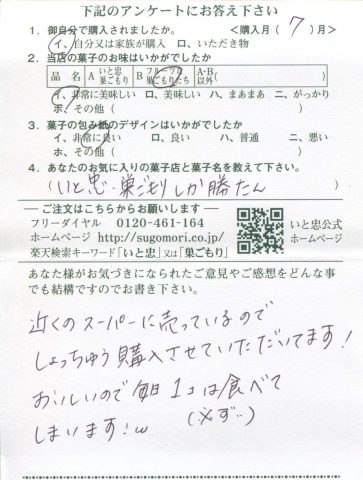 下記のアンケートにお答え下さい
1. 御自分で購入されましたか。 <購入月( 7 )月>
イ、自分又は家族が購入 ロ、いただき物
2. 当店の菓子のお味はいかがでしたか
品 名 A いと忠 巣ごもり B 巣ごもりたち A・B以外
イ、非常に美味しい ロ、美味しい ハ、まあまあ ニ、がっかり
ホ、その他(　　　)
3. 菓子の包み紙のデザインはいかがでしたか
イ、非常に良い ロ、良い ハ、普通 ニ、悪い
ホ、その他(　　　)
4. あなたのお気に入りの菓子店と菓子名を教えて下さい。
(いと忠・巣ごもりしか勝たん)
ご注文はこちらからお願いします
フリーダイヤル 0120-461-164
ホームページ http://sugomori.co.jp/
楽天検索キーワード「いと忠」又は「巣ごもり」
いと忠公式
ホームページ
あなた様がお気づきになられたご意見やご感想をどんな事
でも結構ですのでお書き下さい。
近くのスーパーに売っているので
しょっちゅう購入させていただいてます!
おいしいので毎日1コは食べて
しまいます!w (必ず…)